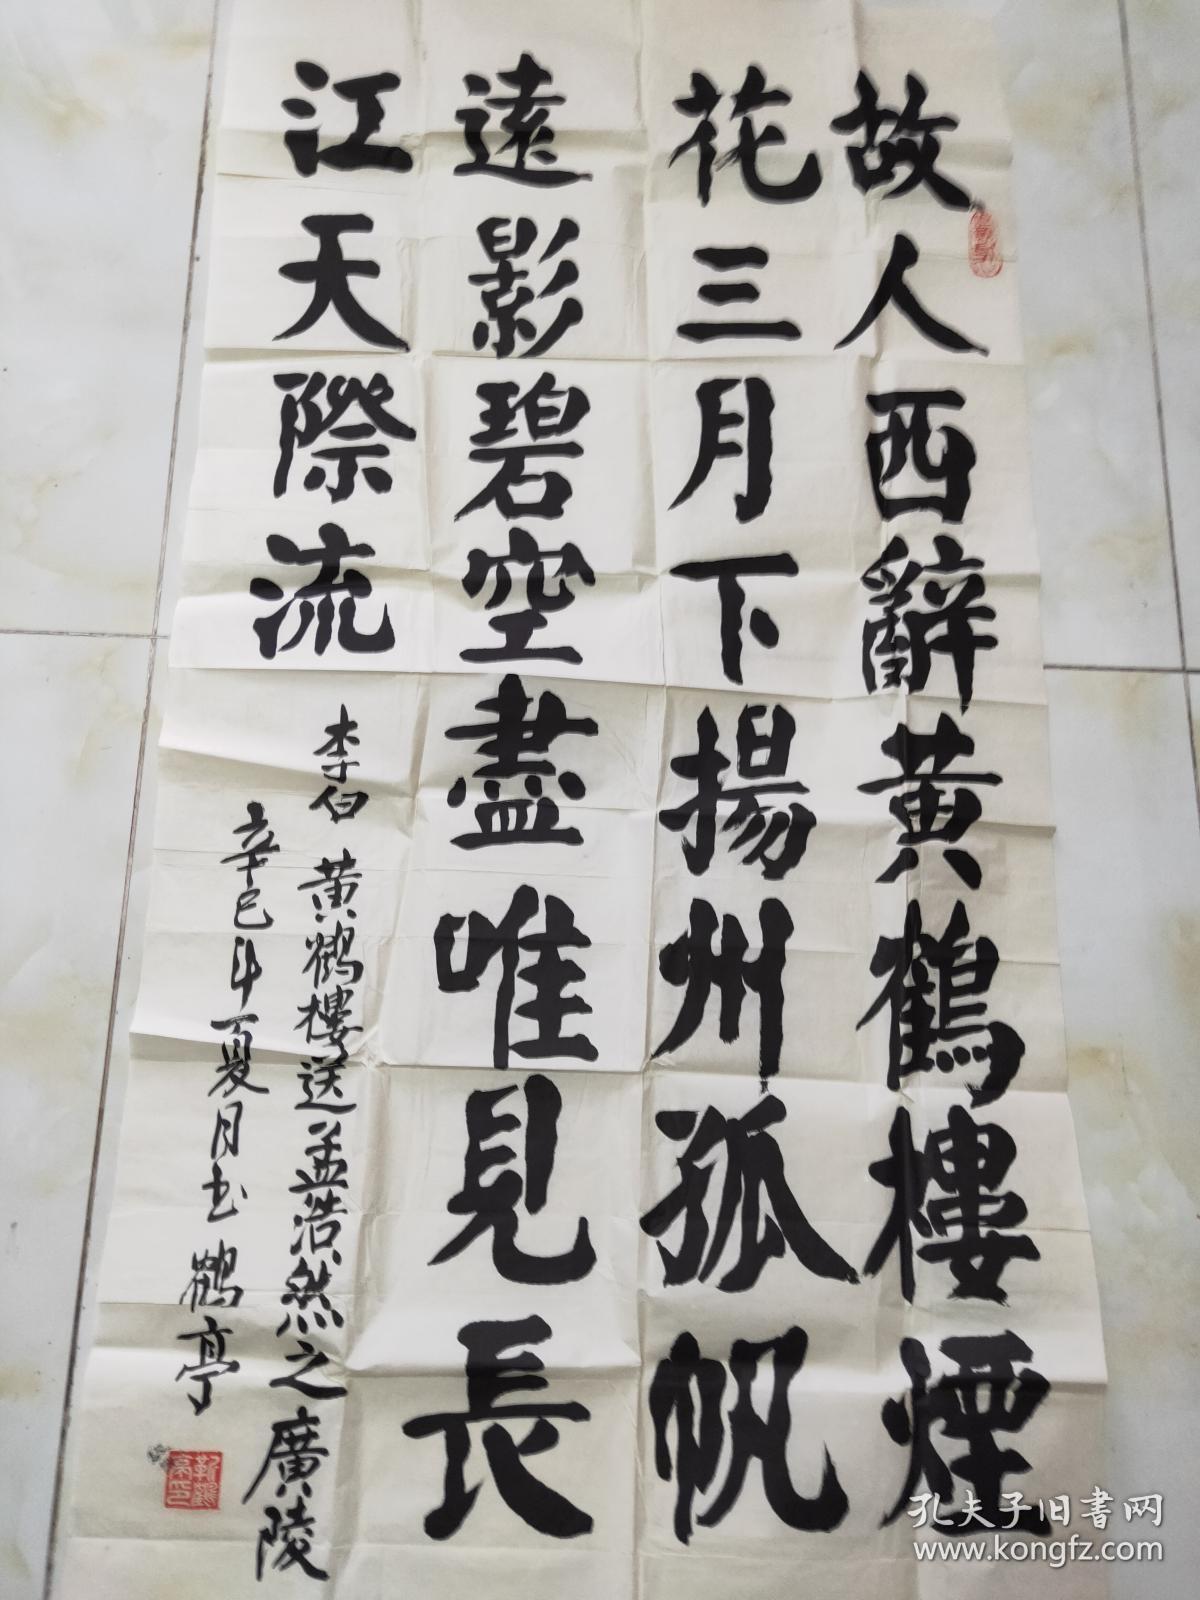 故人西辭黄鶴樓煙
花三月下揚州孤帆
遠影碧空盡唯見長
江天際流
李白 黄鶴樓送孟浩然之廣陵
辛巳年夏月书 鶴亭
靳鶴亭印
孔夫子旧书网
www.kongfz.com